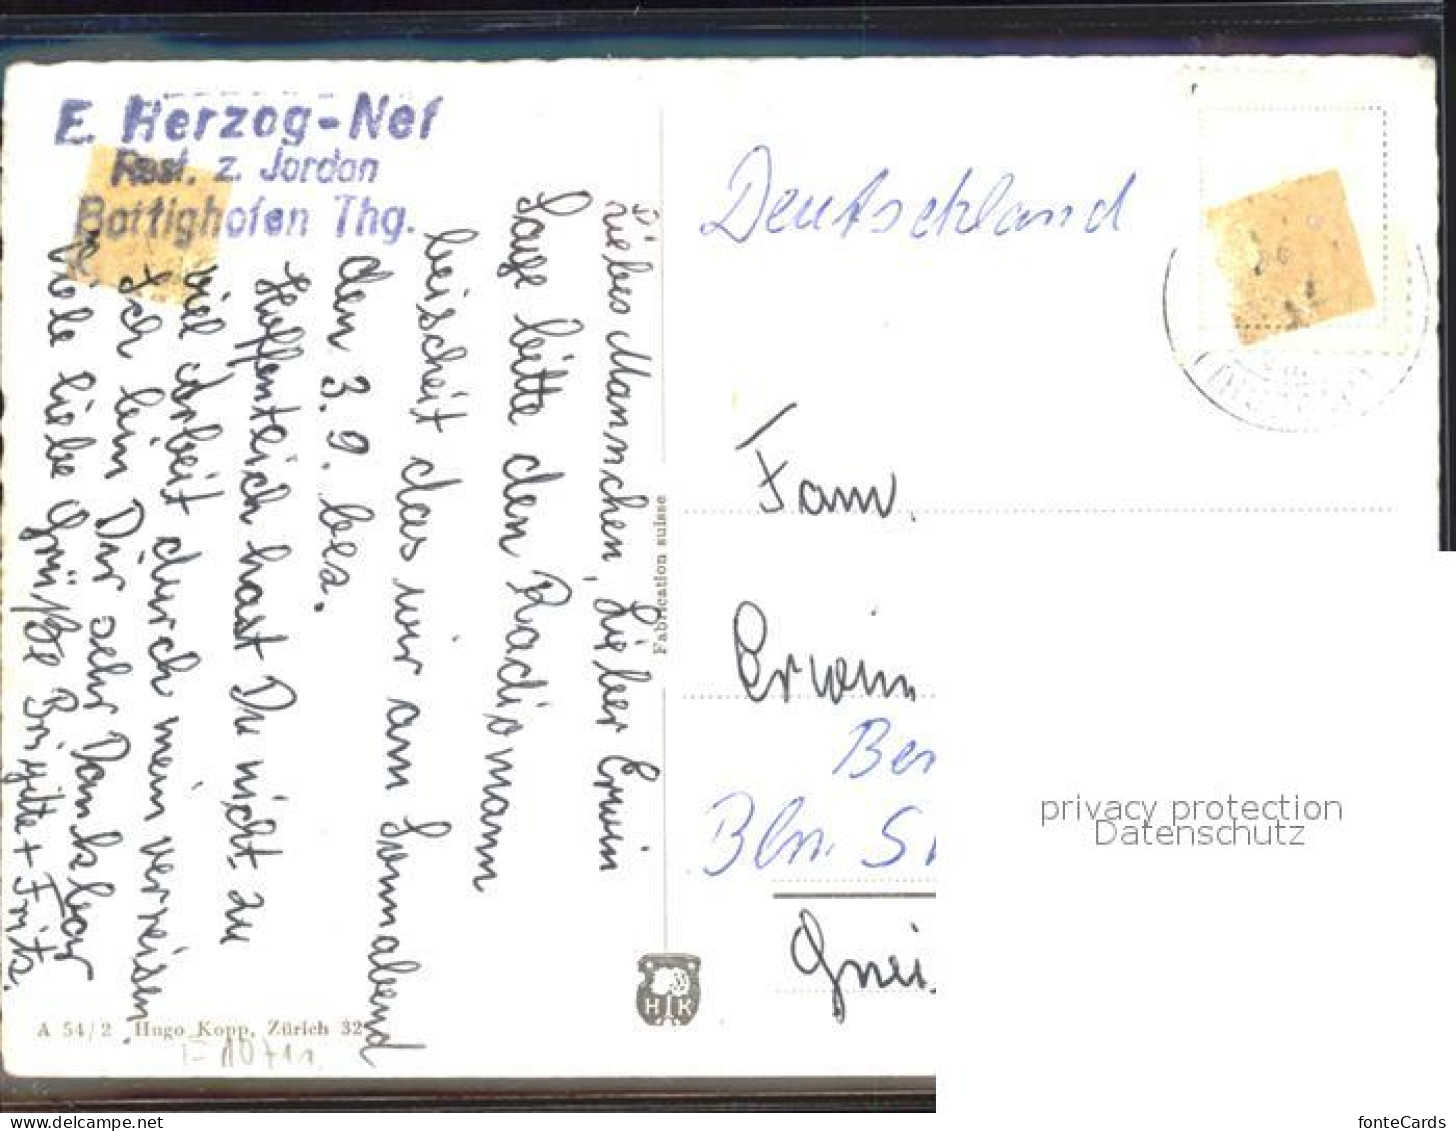 E. Herzog-Nef
Rest. z. Jordan
Bottighofen Thg.
Liebes Mannchen, Lieber Erwin
Sage bitte den Radiomann
beischeit das wir am Sonnabend
den 3. 9. bes.
Hoffentlich hast Du nicht zu
viel Arbeit durch mein verreisen.
Ich bin Dir sehr Dankbar
Viele liebe Grüße Brigitte + Fritz.
Fabrication suisse
HK
A 54/2 Hugo Kopp, Zürich 32
Deutschland
Fam.
Erwin
Ber
Bln. S
Gnei
privacy protection
Datenschutz
www.delcampe.net
fonteCards